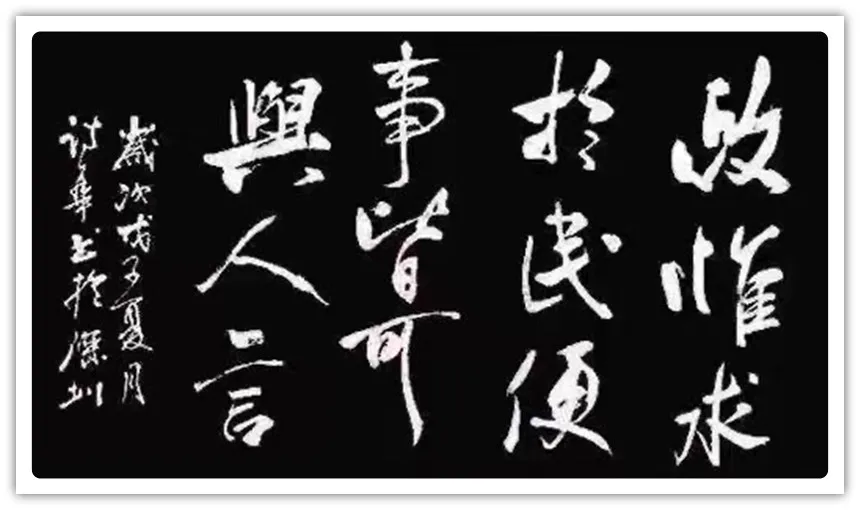 政惟求
於民便
事皆可
與人言
歲次戊子夏月
書於深圳